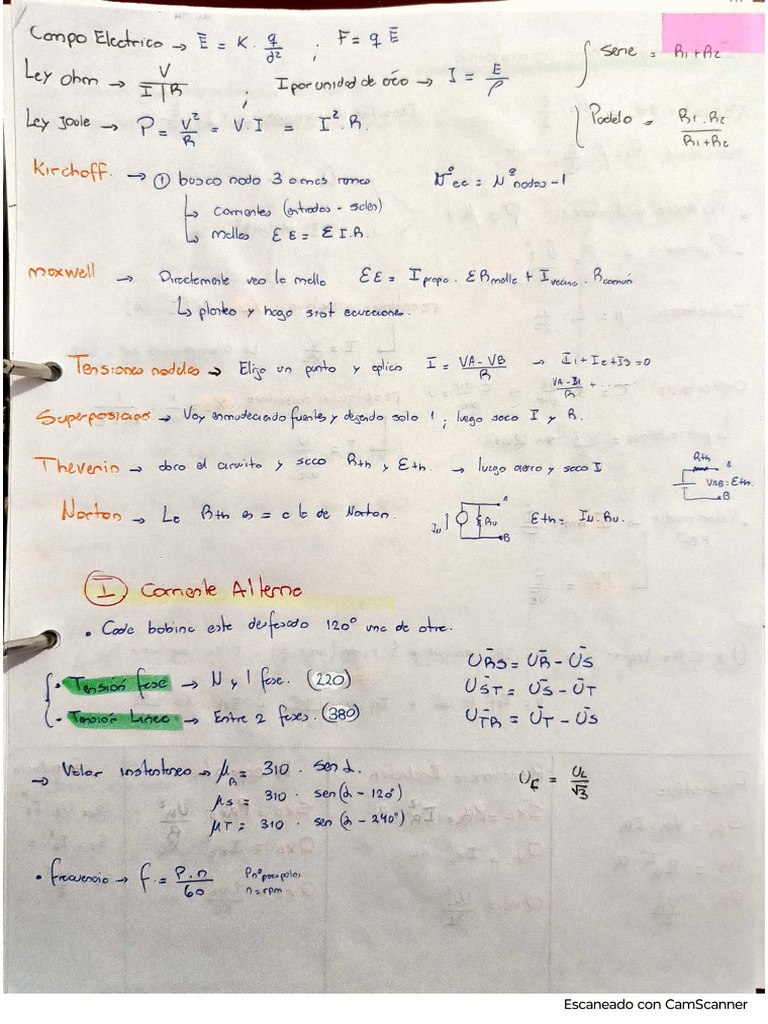 Campo Electrico → Ē = K . q/d² ; F = q Ē
Serie = R1 + R2
Ley Ohm → V / I | R ; I por unidad de área → J = E/ρ
Paralelo = R1 . R2 / R1 + R2
Ley Joule → P = V²/R = V. I = I² . R.
Kirchoff. → ① busco nodo 3 o más ramas
N° ec = N° nodos - 1
↳ corrientes (entradas - salen)
↳ mallas Σ E = Σ I.R.
Maxwell → Directamente veo la malla Σ E = I propia . Σ R malla + I vecina . R común
↳ planteo y hago sist ecuaciones.
Tensiones nodales → Elijo un punto y aplico I = VA - VB / R → I1 + I2 + I3 = 0
VA - B1 / R + ......
Superposición → Voy enmudeciendo fuentes y dejando solo 1 ; luego saco I y R.
Thevenin → abro el circuito y saco Rth y Eth. → luego cierro y saco I
Rth A VAB = Eth B
Norton → La Rth es = a la de Norton. IN RN A B Eth = IN . RN.
I Corriente Alterna
• Cada bobina esta desfasado 120° una de otra.
• Tensión fase → N y 1 fase. (220)
• Tensión Linea → Entre 2 fases. (380)
ŪRS = ŪR - ŪS
ŪST = ŪS - ŪT
ŪTR = ŪT - ŪS
→ Valor instantaneo → μR = 310 . sen α.
μS = 310 . sen (α - 120°)
μT = 310 . sen (α - 240°)
UF = UL / √3
• frecuencia → f. = P . n / 60
P n° pares polos
n = rpm.
Escaneado con CamScanner